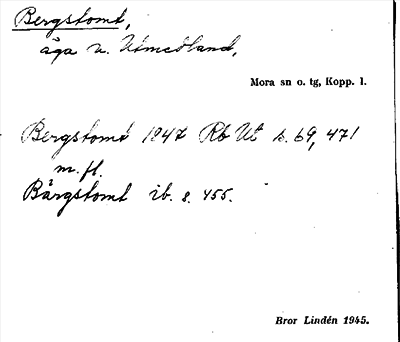 Bergstomt,
äga n. Utmedland,
Mora sn o. tg, Kopp. l.
Bergstomt 1847 Rb Ut s. 69, 471
m. fl.
Bärgstomt ib. s. 455.
Bror Lindén 1945.